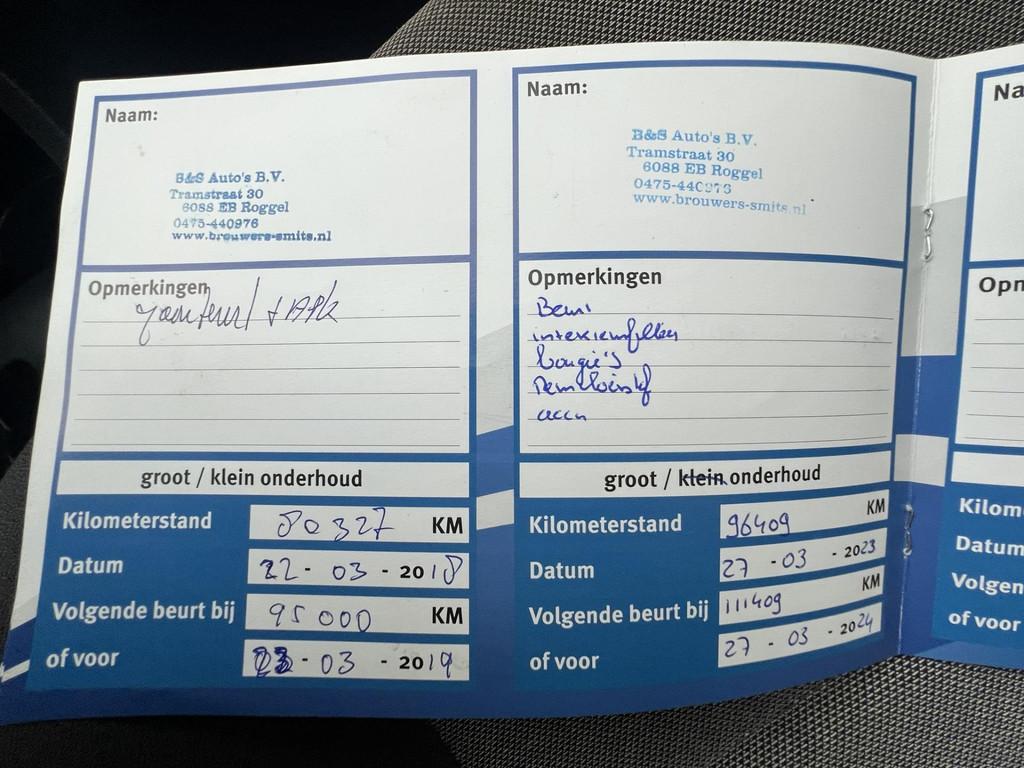 Naam:
B&S Auto's B.V.
Tramstraat 30
6088 EB Roggel
0475-440976
www.brouwers-smits.nl
Opmerkingen
+ APK
groot / klein onderhoud
Kilometerstand 80327 KM
Datum 22 - 03 - 2018
Volgende beurt bij 95000 KM
of voor 23 - 03 - 2019
Naam:
B&S Auto's B.V.
Tramstraat 30
6088 EB Roggel
0475-440976
www.brouwers-smits.nl
Opmerkingen
Beurt
interieurfilter
bougie's
Remvloeistof
accu
groot / klein onderhoud
Kilometerstand 96409 KM
Datum 27 - 03 - 2023
Volgende beurt bij 111409 KM
of voor 27 - 03 - 2024
Na
Opm
Kilom
Datum
Volgen
of voor